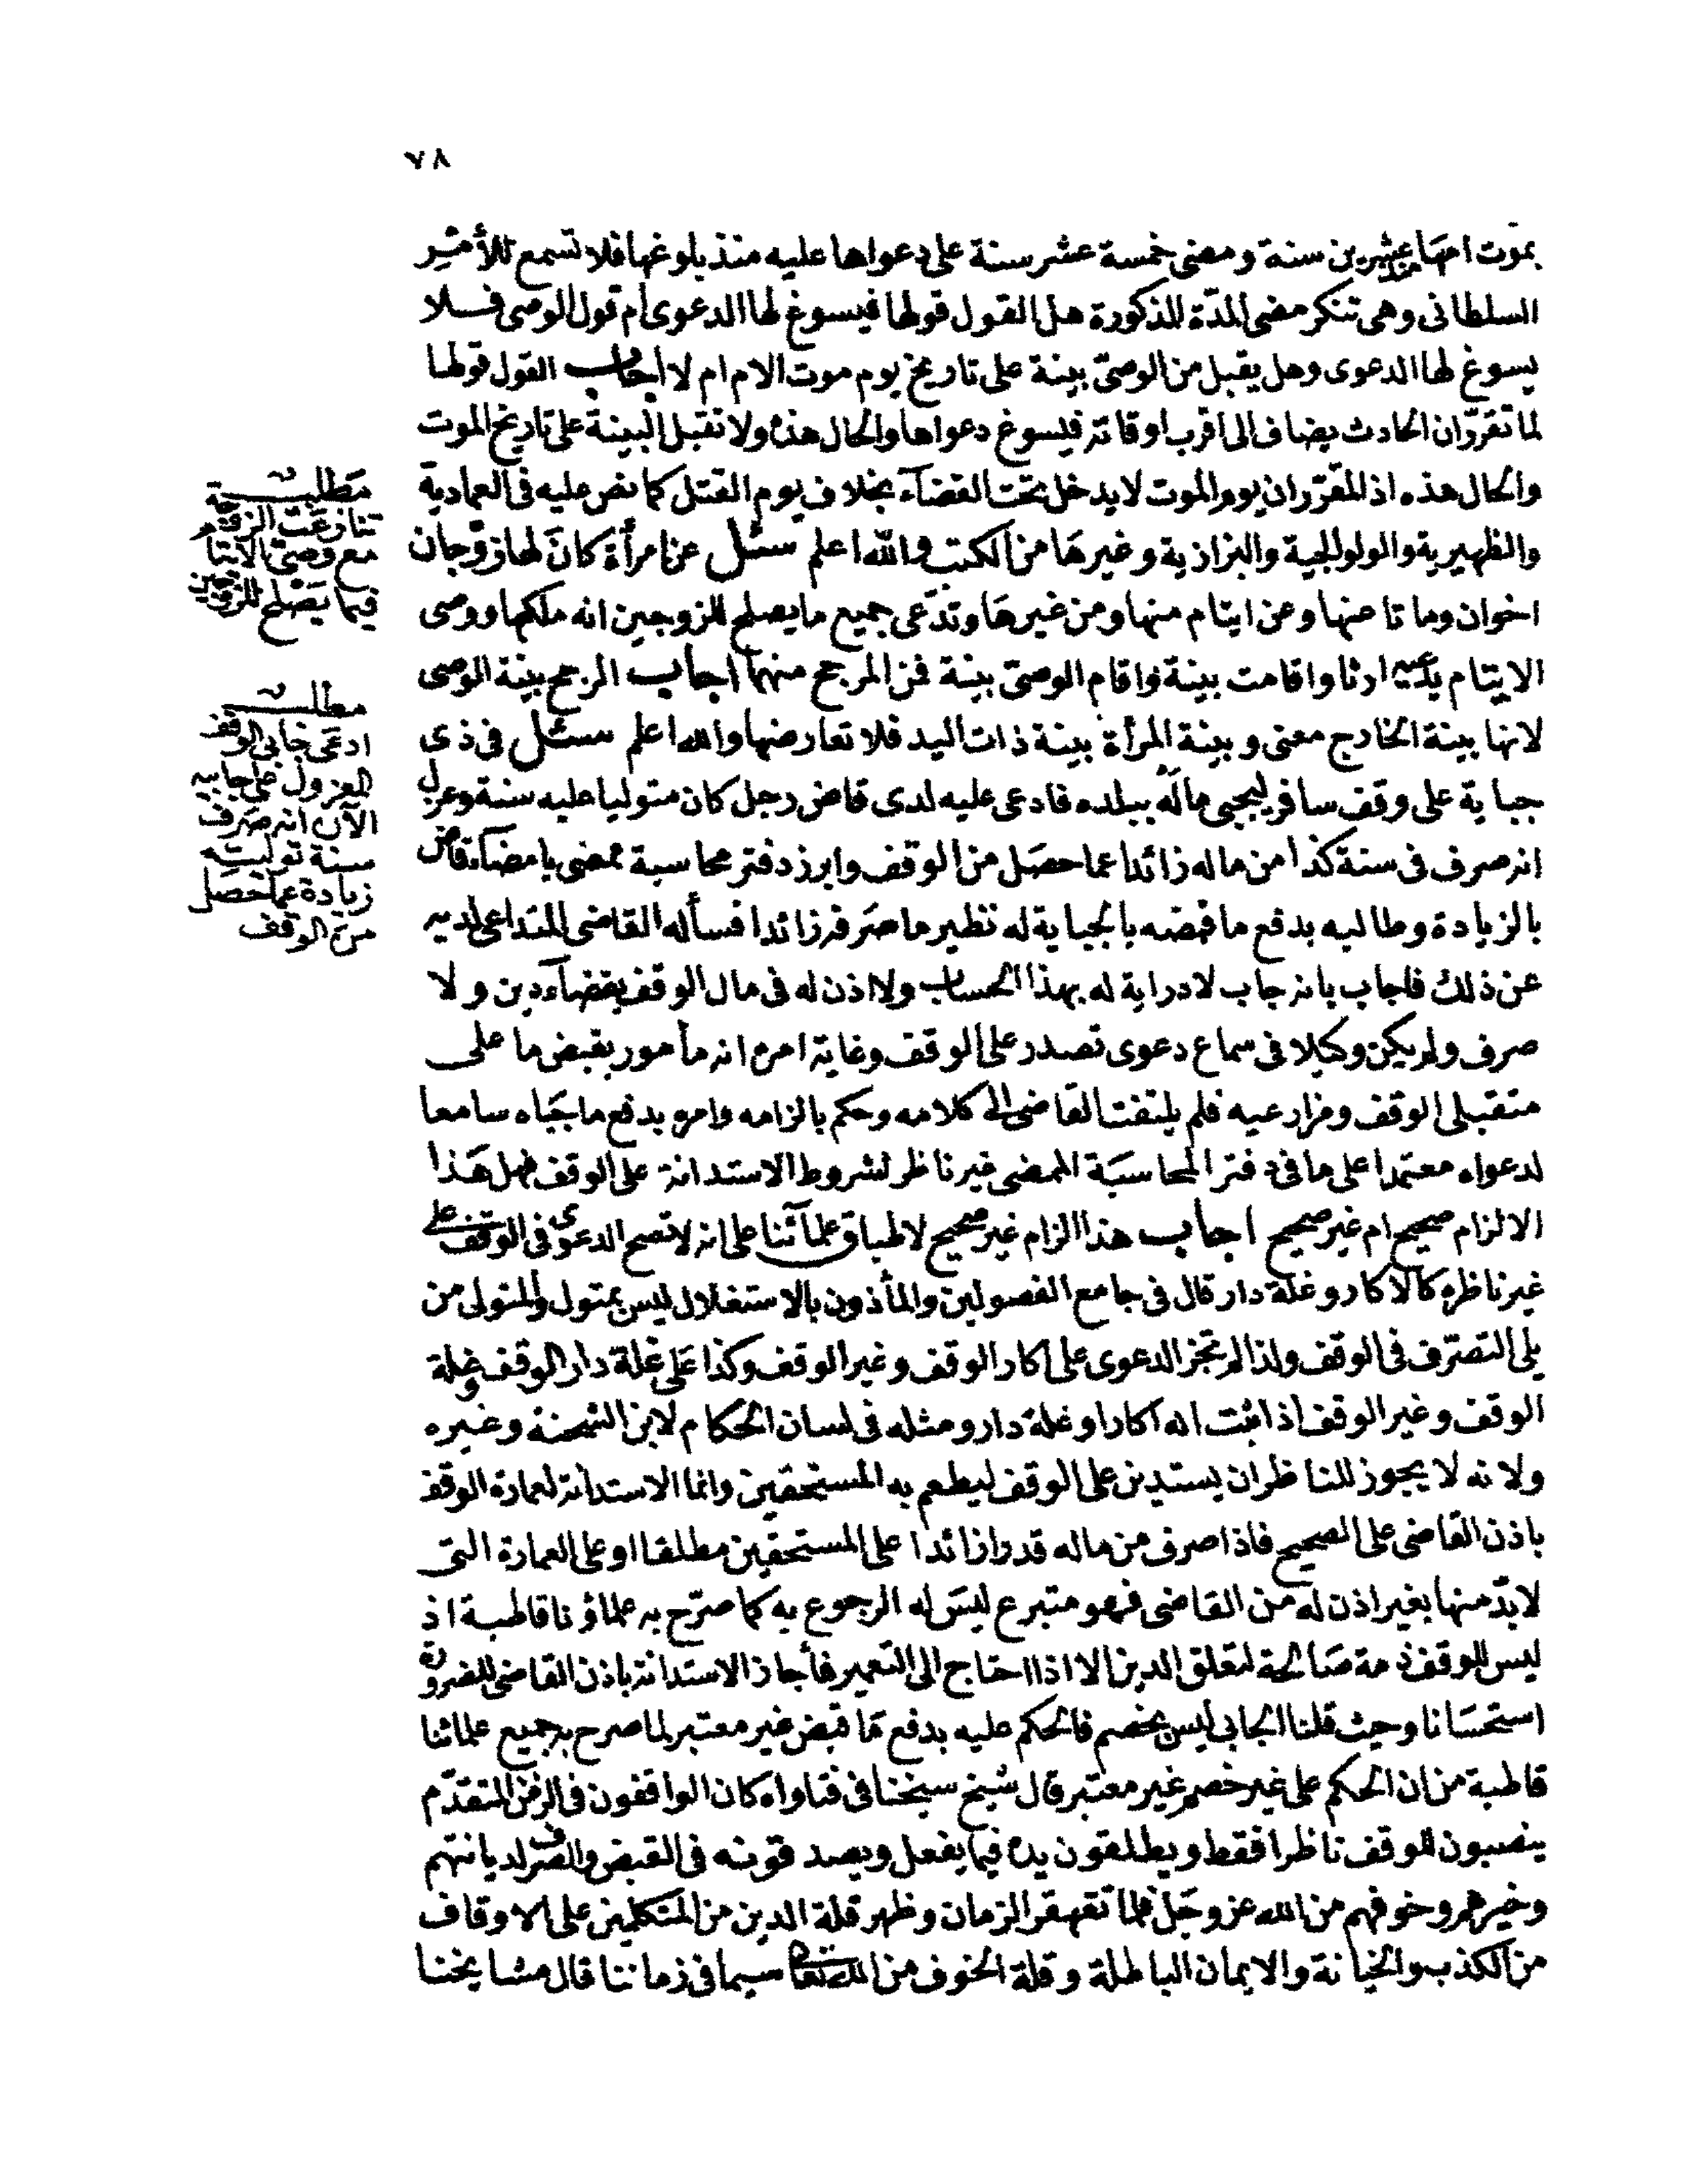 ٧٨
بموت امها منذ عشرين سنة ومضى خمسة عشر سنة على دعواها عليه منذ بلوغها فلا تسمع للأمر
السلطانى وهى تنكر مضى المدّة المذكورة هل القول قولها فيسوغ لها الدعوى ام قول الوصى فلا
يسوغ لها الدعوى وهل يقبل من الوصىّ بينة على تاريخ يوم موت الام ام لا اجاب القول قولها
لما تقرّر ان الحادث يضاف الى اقرب اوقاته فيسوغ دعواها والحال هذه ولا تقبل البينة على تاريخ الموت
والحال هذه اذ المقرّر ان يوم الموت لا يدخل تحت القضآء بخلاف يوم القتل كما نص عليه فى العمادية
والظهيرية والولوالجية والبزازية وغيرها من الكتب والله اعلم سئل عن امرأة كان لها زوجان
اخوان وماتا عنها وعن ايتام منها ومن غيرها وتدّعى جميع ما يصلح للزوجين انه ملكها ووصى
الايتام يدّعيه ارثا واقامت بينة واقام الوصىّ بينة فمن المرجح منهما اجاب المرجح بينة الوصى
لانها بينة الخارج معنى وبينة المرأة بينة ذات اليد فلا تعارضها والله اعلم سئل فى ذى
جباية على وقف سافر ليجبى ماله ببلده فادعى عليه لدى قاض رجل كان متوليا عليه سنة وعزل
انه صرف فى سنة كذا من ماله زائدا عما حصل من الوقف وابرز دفتر محاسبة ممضى بامضآء قاض
بالزيادة وطالبه بدفع ما قبضه بالجباية له نظير ما صرفه زائدا فسأله القاضى المتداعى لديه
عن ذلك فاجاب بانه جاب لا دراية له بهذا الحساب ولا اذن له فى مال الوقف بقضآء دين ولا
صرف ولم يكن وكيلا فى سماع دعوى تصدر على الوقف وغاية امره انه مأمور بقبض ما على
متقبلى الوقف ومزارعيه فلم يلتفت القاضى الى كلامه وحكم بالزامه وامره بدفع ما جباه سامعا
لدعواه معتمدا على ما فى دفتر المحاسبة الممضى غير ناظر لشروط الاستدانة على الوقف فهل هذا
الالزام صحيح ام غير صحيح اجاب هذا الزام غير صحيح لاطباق علمآئنا على انه لا تصح الدعوى فى الوقف على
غير ناظره كالاكار وغلة دار قال فى جامع الفصولين والمأذون بالاستغلال ليس بمتول والمتولى من
يلى التصرّف فى الوقف ولذا لم تجز الدعوى على اكار الوقف وغير الوقف وكذا على غلة دار الوقف وغلة
الوقف وغير الوقف اذا ثبت انه اكار او غلة دار ومثله فى لسان الحكام لابن الشحنة وغيره
ولانه لا يجوز للناظر ان يستدين على الوقف ليطعم به المستحقين وانما الاستدانة لعمارة الوقف
باذن القاضى على الصحيح فاذا صرف من ماله قدرا زائدا على المستحقين مطلقا او على العمارة التى
لابدّ منها بغير اذن له من القاضى فهو متبرع ليس له الرجوع به كما صرّح به علماؤنا قاطبة اذ
ليس للوقف ذمة صالحة لتعلق الدين الا اذا احتاج الى التعمير فأجاز الاستدانة باذن القاضى للضرورة
استحسانا وحيث قلنا الجابى ليس بخصم فالحكم عليه بدفع ما قبض غير معتبر لما صرح به جميع علمائنا
قاطبة من ان الحكم على غير خصم غير معتبر قال شيخ شيخنا فى فتاواه كان الواقفون فى الزمن المتقدّم
ينصبون للوقف ناظرا فقط ويطلقون يده فيما يفعل ويصدقونه فى القبض والصرف لديانتهم
وخيرهم وخوفهم من الله عز وجل فلما تقهقر الزمان وظهر قلة الدين من المتكلمين على الاوقاف
من الكذب والخيانة والايمان الباطلة وقلة الخوف من الله تعالى سيما فى زماننا قال مشايخنا
مطلب
تنازعت الزوجة
مع وصىّ الايتام
فيما يصلح للزوجين
مطلب
ادعى جابى الوقف
المعزول على جابيه
الآن انه صرف
سنة توليته
زيادة عما حصل
من الوقف